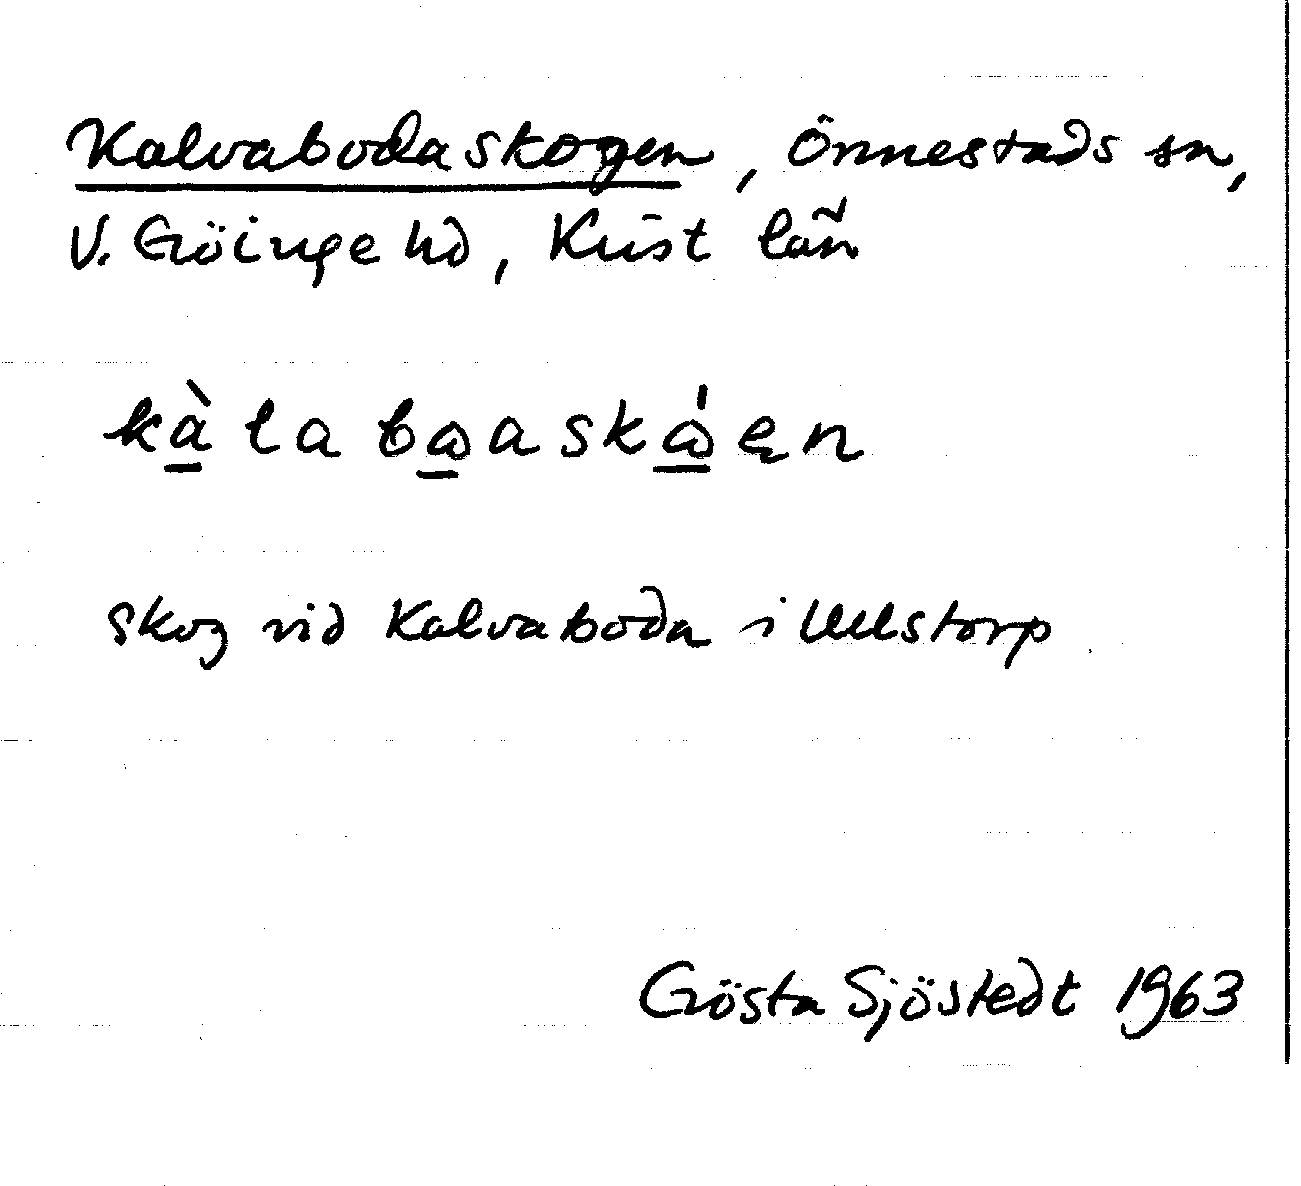 Kalvabodaskogen, Önnestads sn,
V. Göinge hd, Krist län
kàlabωaskώen
Skog vid Kalvaboda i Ullstorp
Gösta Sjöstedt 1963